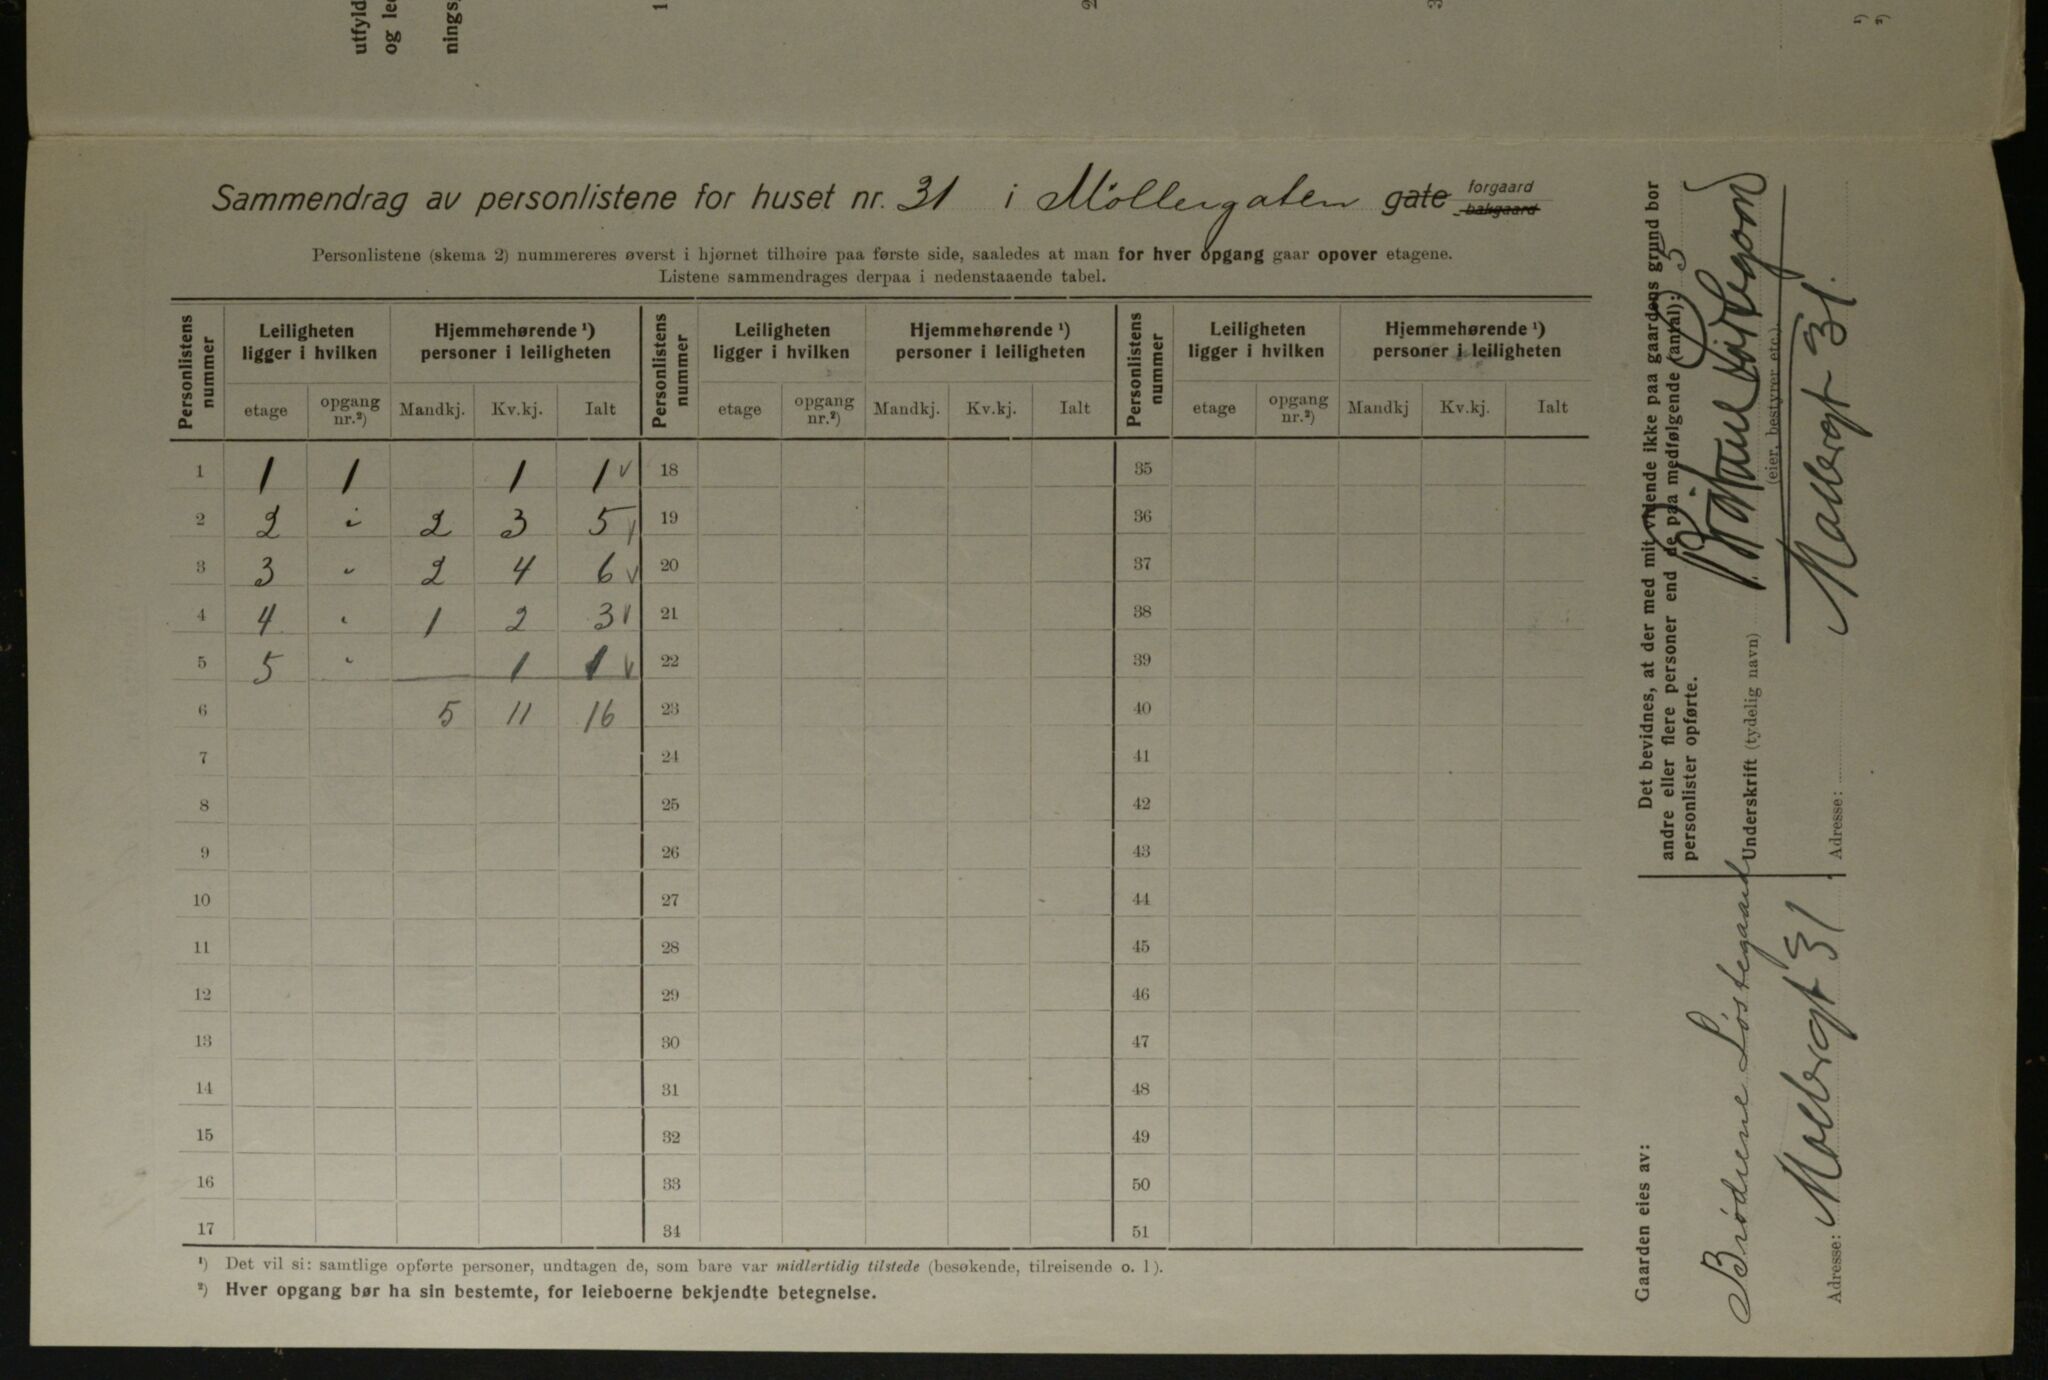 utfyld
og le
nings
1
2
3
¹)
²)
Sammendrag av personlistene for huset nr. 31 i Möllergaten gate forgaard bakgaard
Personlistene (skema 2) nummereres øverst i hjørnet tilhøire paa første side, saaledes at man for hver opgang gaar opover etagene.
Listene sammendrages derpaa i nedenstaaende tabel.
Personlistens nummer Leiligheten ligger i hvilken Hjemmehørende ¹) personer i leiligheten Personlistens nummer Leiligheten ligger i hvilken Hjemmehørende ¹) personer i leiligheten Personlistens nummer Leiligheten ligger i hvilken Hjemmehørende ¹) personer i leiligheten
etage opgang nr.²) Mandkj. Kv.kj. Ialt etage opgang nr.²) Mandkj. Kv.kj. Ialt etage opgang nr.²) Mandkj Kv.kj. Ialt
1 1 1 1 1 √ 18 35
2 2 " 2 3 5 √ 19 36
3 3 " 2 4 6 √ 20 37
4 4 " 1 2 3 √ 21 38
5 5 " 1 1 √ 22 39
6 5 11 16 23 40
7 24 41
8 25 42
9 26 43
10 27 44
11 28 45
12 29 46
13 30 47
14 31 48
15 32 49
16 33 50
17 34 51
¹) Det vil si: samtlige opførte personer, undtagen de, som bare var midlertidig tilstede (besøkende, tilreisende o. l).
²) Hver opgang bør ha sin bestemte, for leieboerne bekjendte betegnelse.
Det bevidnes, at der med mit vidende ikke paa gaardens grund bor
andre eller flere personer end de paa medfølgende (antal): 5
personlister opførte.
Underskrift (tydelig navn)
(eier, bestyrer etc.)
Adresse: Møllergt 31.
Gaarden eies av:
Brödrene Löstegaard
Adresse: Møllergt 31